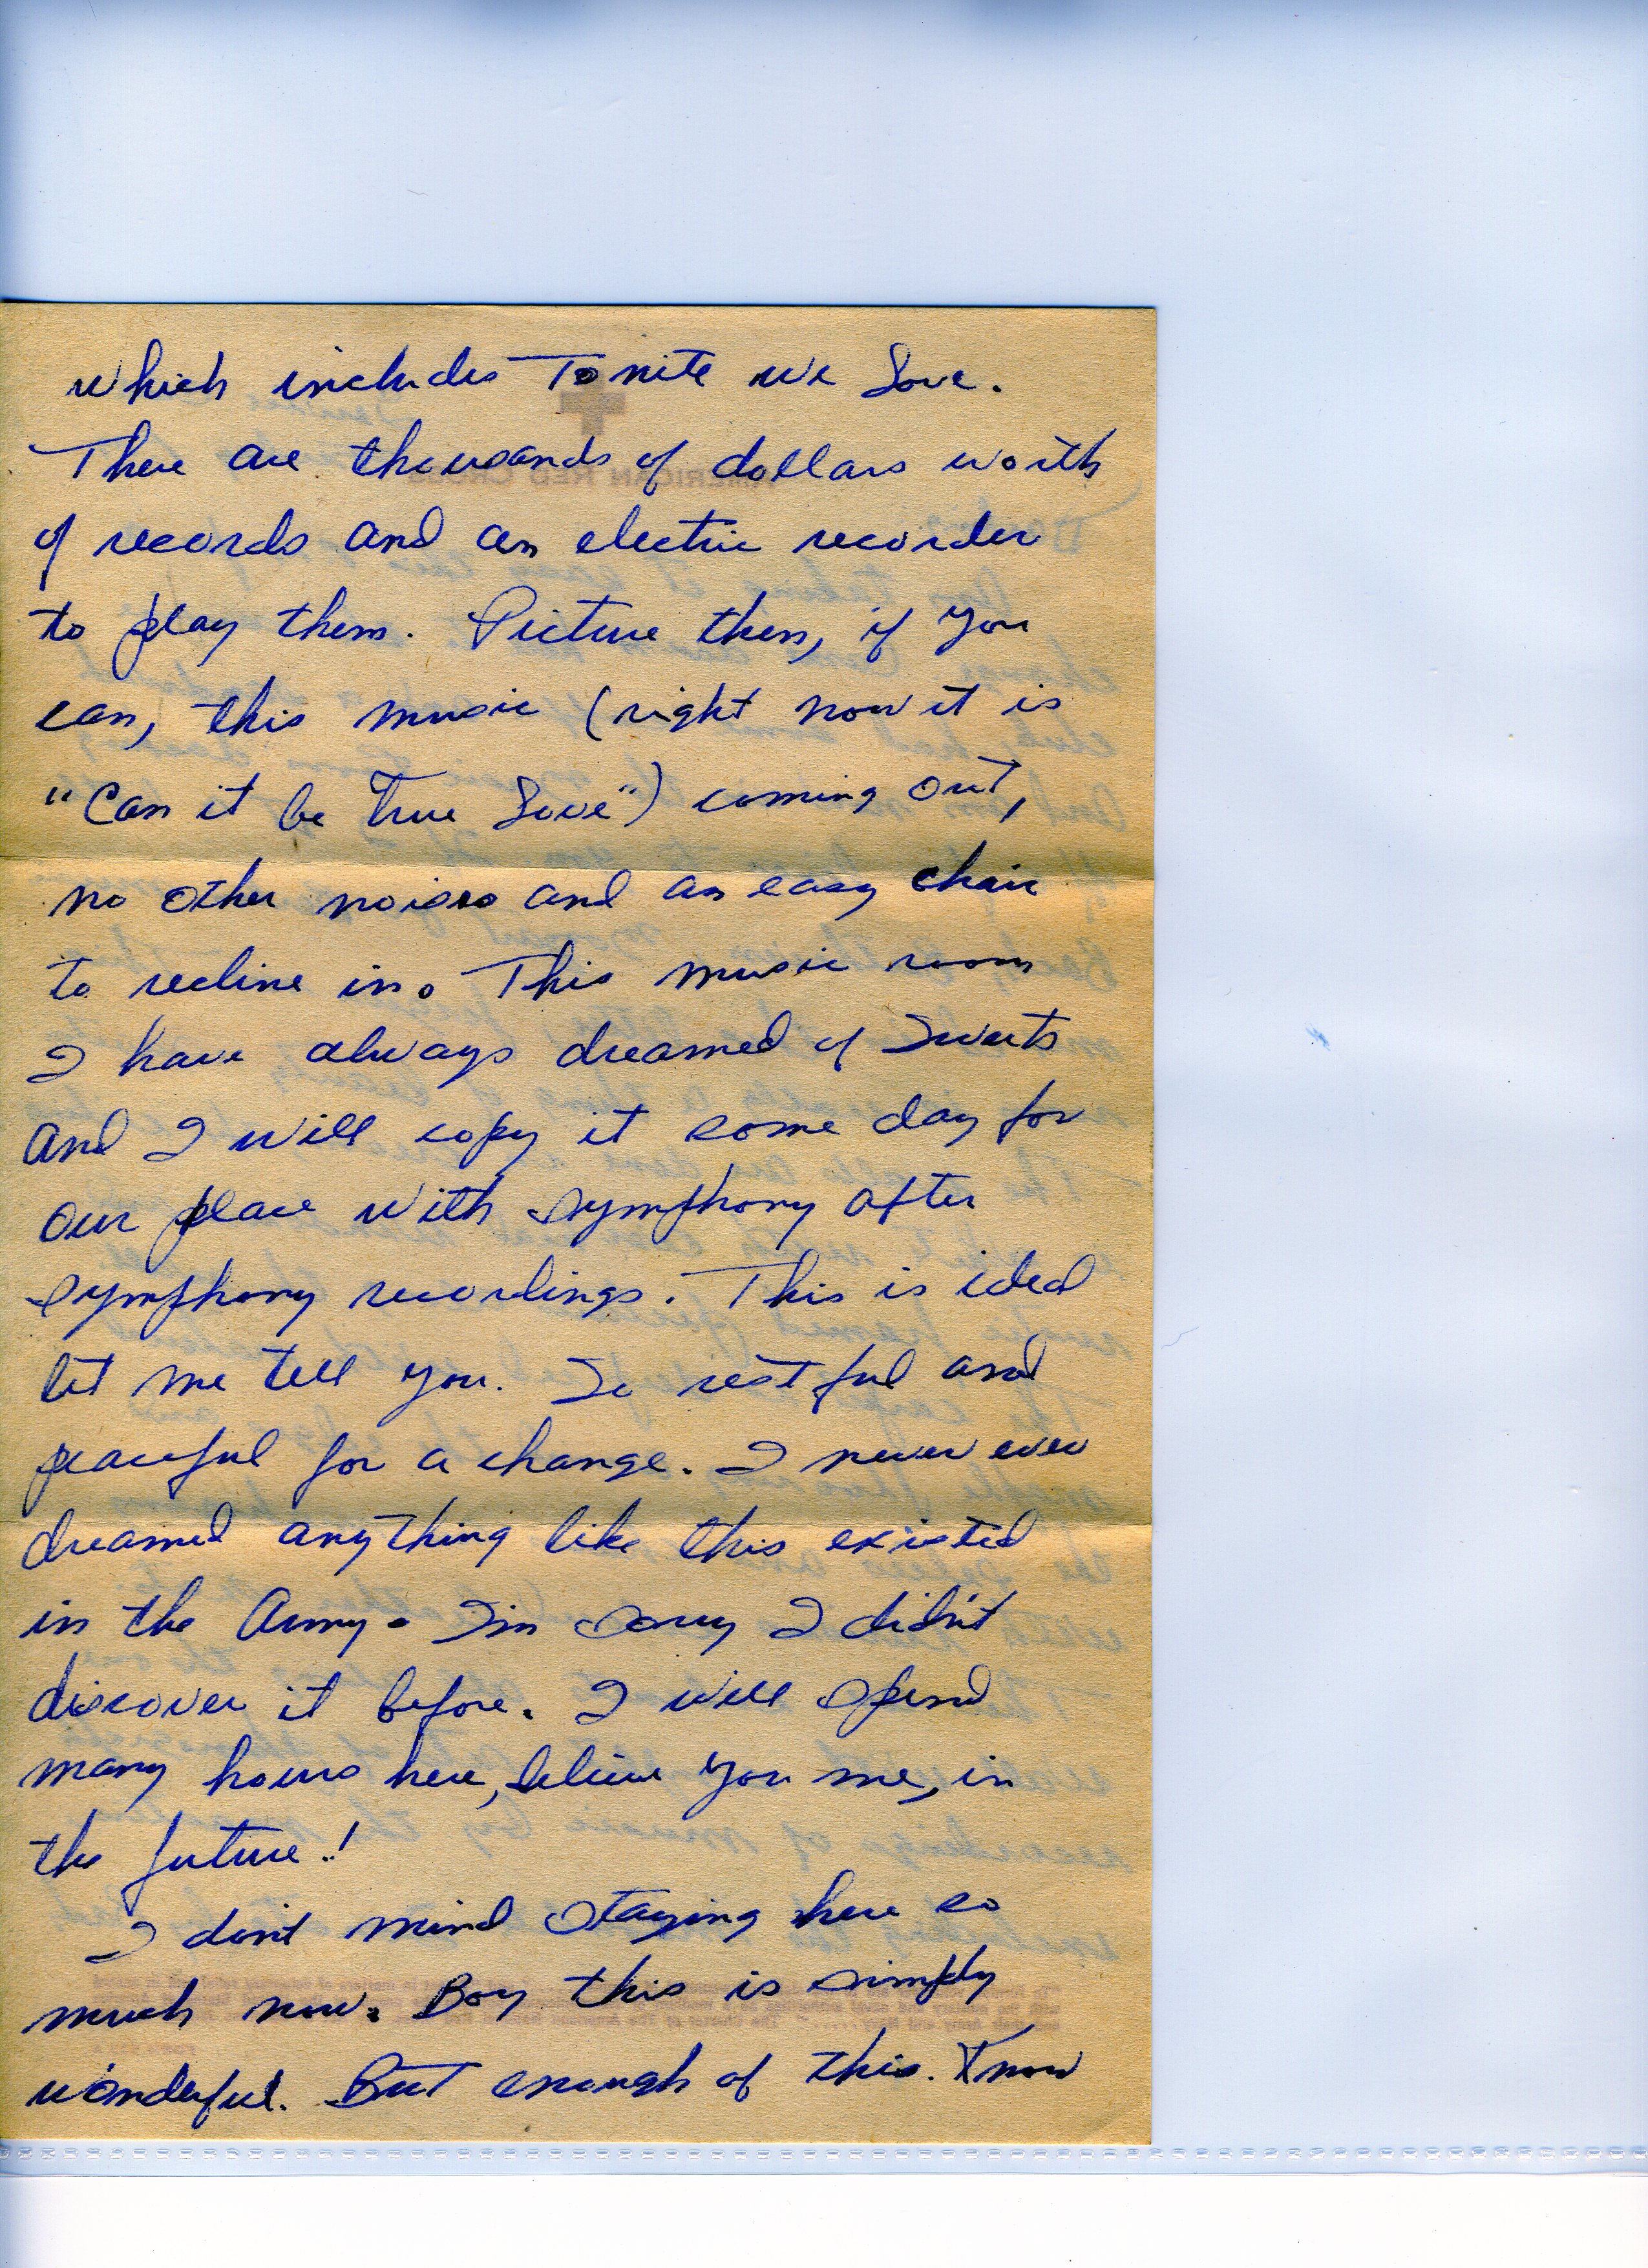 which includes Tonite we Love.
There are thousands of dollars worth
of records and an electric recorder
to play them. Picture then, if you
can, this music (right now it is
"Can it be True Love") coming out,
no other noises and an easy chair
to recline in. This music room
I have always dreamed of Sweets
and I will copy it some day for
our place with symphony after
symphony recordings. This is ideal
let me tell you. So restful and
peaceful for a change. I never ever
dreamed anything like this existed
in the Army. I'm sorry I didn't
discover it before. I will spend
many hours here, believe you me, in
the future!
I don't mind staying here so
much now. Boy this is simply
wonderful. But enough of this. Know
AMERICAN RED CROSS